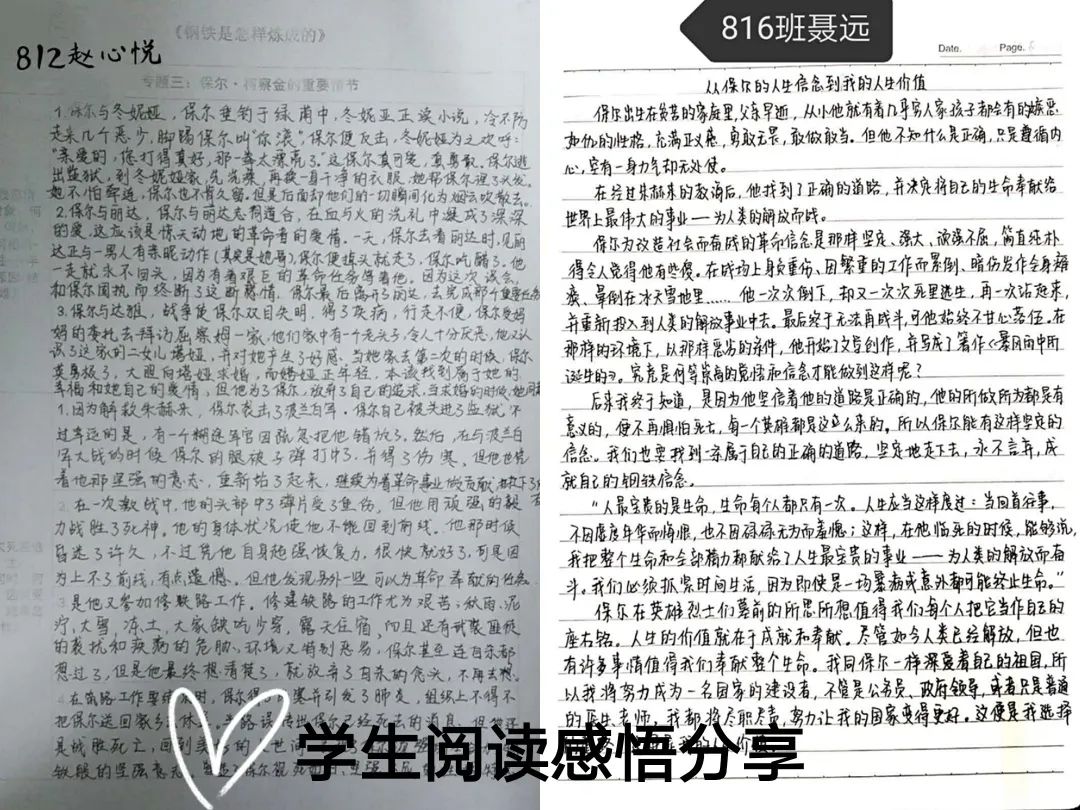 《钢铁是怎样炼成的》
812赵心悦
专题三：保尔·柯察金的重要情节
1.保尔与冬妮娅，保尔垂钓于绿荫中，冬妮亚正读小说，冷不防
走来几个恶少，脚踢保尔叫“你滚”，保尔便反击，冬妮娅为之欢呼：
“亲爱的，您打得真好，那一拳太漂亮了。”这保尔真可笑，真勇敢。保尔逃
出监狱，到冬妮娅家，先洗澡，再换一身干净的衣服，她帮保尔理了头发。
她不怕牵连，保尔也不肯久留。但是后面却他们的一切瞬间化为烟云吹散去。
2.保尔与丽达，保尔与丽达志同道合，在血与火的洗礼中凝成了深深
的爱，这应该是惊天动地的革命者的爱情。一天，保尔去看丽达时，见丽
达正与一男人有亲昵动作(其实是她哥)保尔便扭头就走了，保尔吃醋了。他
一走就永不回头，因为有着艰巨的革命任务等着他。因为这次误会，
和保尔固执而终断了这断感情。保尔最后离开了丽达，去完成那个重要任务
3.保尔与达雅，战争使保尔双目失明，得了灰病，行走不便，保尔受妈
妈的委托去拜访屈察姆一家，他们家中有一个老头子，令人十分厌恶，他又认
识了这家的二女儿塔娅，并对她产生了好感。当她家去第二次的时候，保尔
真勇敢了，大胆向塔娅求婚，而塔娅正年轻，本该找到属于她的
幸福和她自己的爱情，但他为了保尔，放弃了自己的追求，当求婚的时候，她同
1.因为解救朱赫来，保尔袭击了波兰白军。保尔自己被关进了监狱，不
过幸运的是，有一个糊涂军官因疏忽把他错放了。然后，在与波兰白
军大战的时候保尔的腿被子弹打中了，并得了伤寒，但他也凭
着他那坚强的意志，重新站了起来，继续为着革命事业做贡献
2.在一次激战中，他的头部中了弹片受了重伤，但他用顽强的毅
力战胜了死神。他的身体状况使他不能回到前线。他那时候
昏迷了许久，不过凭他自身超强恢复力，很快就好了，可是因
为上不了前线，有点遗憾。但他发现另外一些可以为革命奉献的任务
3.是他又参加修铁路工作。修建铁路的工作尤为艰苦；秋雨、泥
泞、大雪，冻土，大家缺吃少穿，露天住宿，而且还有武装匪徒
的袭扰和疾病的危胁，环境又特别恶劣，保尔甚至连自杀都
想过了，但是他最终想清楚了，就放弃了自杀的念头，不再去想。
4.在筑路工作要结束时，保尔得了伤寒并引发了肺炎，组织上不得不
把保尔送回家乡去休
保尔已经死去的消息，但他还
是战胜死亡，回到
铁般的坚强意志
816班聂远
Date.
Page. 6
从保尔的人生信念到我的人生价值
保尔出生在贫苦的家庭里，父亲早逝，从小他就有着几乎穷人家孩子都会有的嫉恶
如仇的性格，充满正义感，勇敢无畏，敢做敢当。但他不知什么是正确，只是遵循内
心，空有一身力气却无处使。
在经过朱赫来的教诲后，他找到了正确的道路，并决定将自己的生命奉献给
世界上最伟大的事业——为人类的解放而战。
保尔为改造社会而奋战的革命信念是那样坚定、强大、顽强不屈，简直纯朴
得令人觉得他有些傻。在战场上身负重伤、因繁重的工作而累倒、暗伤发作全身瘫
痪、晕倒在冰天雪地里……他一次次倒下，却又一次次死里逃生，再一次站起来，
并重新投入到人类的解放事业中去。最后终于无法再战斗，可他始终不甘心落伍。在
那样的环境下，以那样恶劣的条件，他开始了文学创作，并写成了著作《暴风雨中所
诞生的》。究竟是何等崇高的觉悟和信念才能做到这样呢？
后来我终于知道，是因为他坚信着他的道路是正确的，他的所做所为都是有
意义的，便不再惧怕死亡，每一个英雄都是这么来的。所以保尔能有这样坚定的
信念。我们也要找到一条属于自己的正确的道路，坚定地走下去，永不言弃，成
就自己的钢铁信念。
“人最宝贵的是生命，生命每个人都只有一次。人生应当这样度过：当回首往事，
不因虚度年华而悔恨，也不因碌碌无为而羞愧；这样，在他临死的时候，能够说，
我把整个生命和全部精力都献给了人生最宝贵的事业——为人类的解放而奋
斗。我们必须抓紧时间生活，因为即使是一场暴病或意外都可能终止生命。”
保尔在英雄烈士们墓前的所思所想值得我们每个人把它当作自己的
座右铭。人生的价值就在于成就和奉献。尽管如今人类已经解放，但也
有许多事情值得我们奉献整个生命。我同保尔一样深爱着自己的祖国，所
以我将努力成为一名国家的建设者，不管是公务员、政府领导，或者只是普通
的医生、老师，我都将尽职尽责，努力让我的国家变得更好。这便是我选择
学生阅读感悟分享